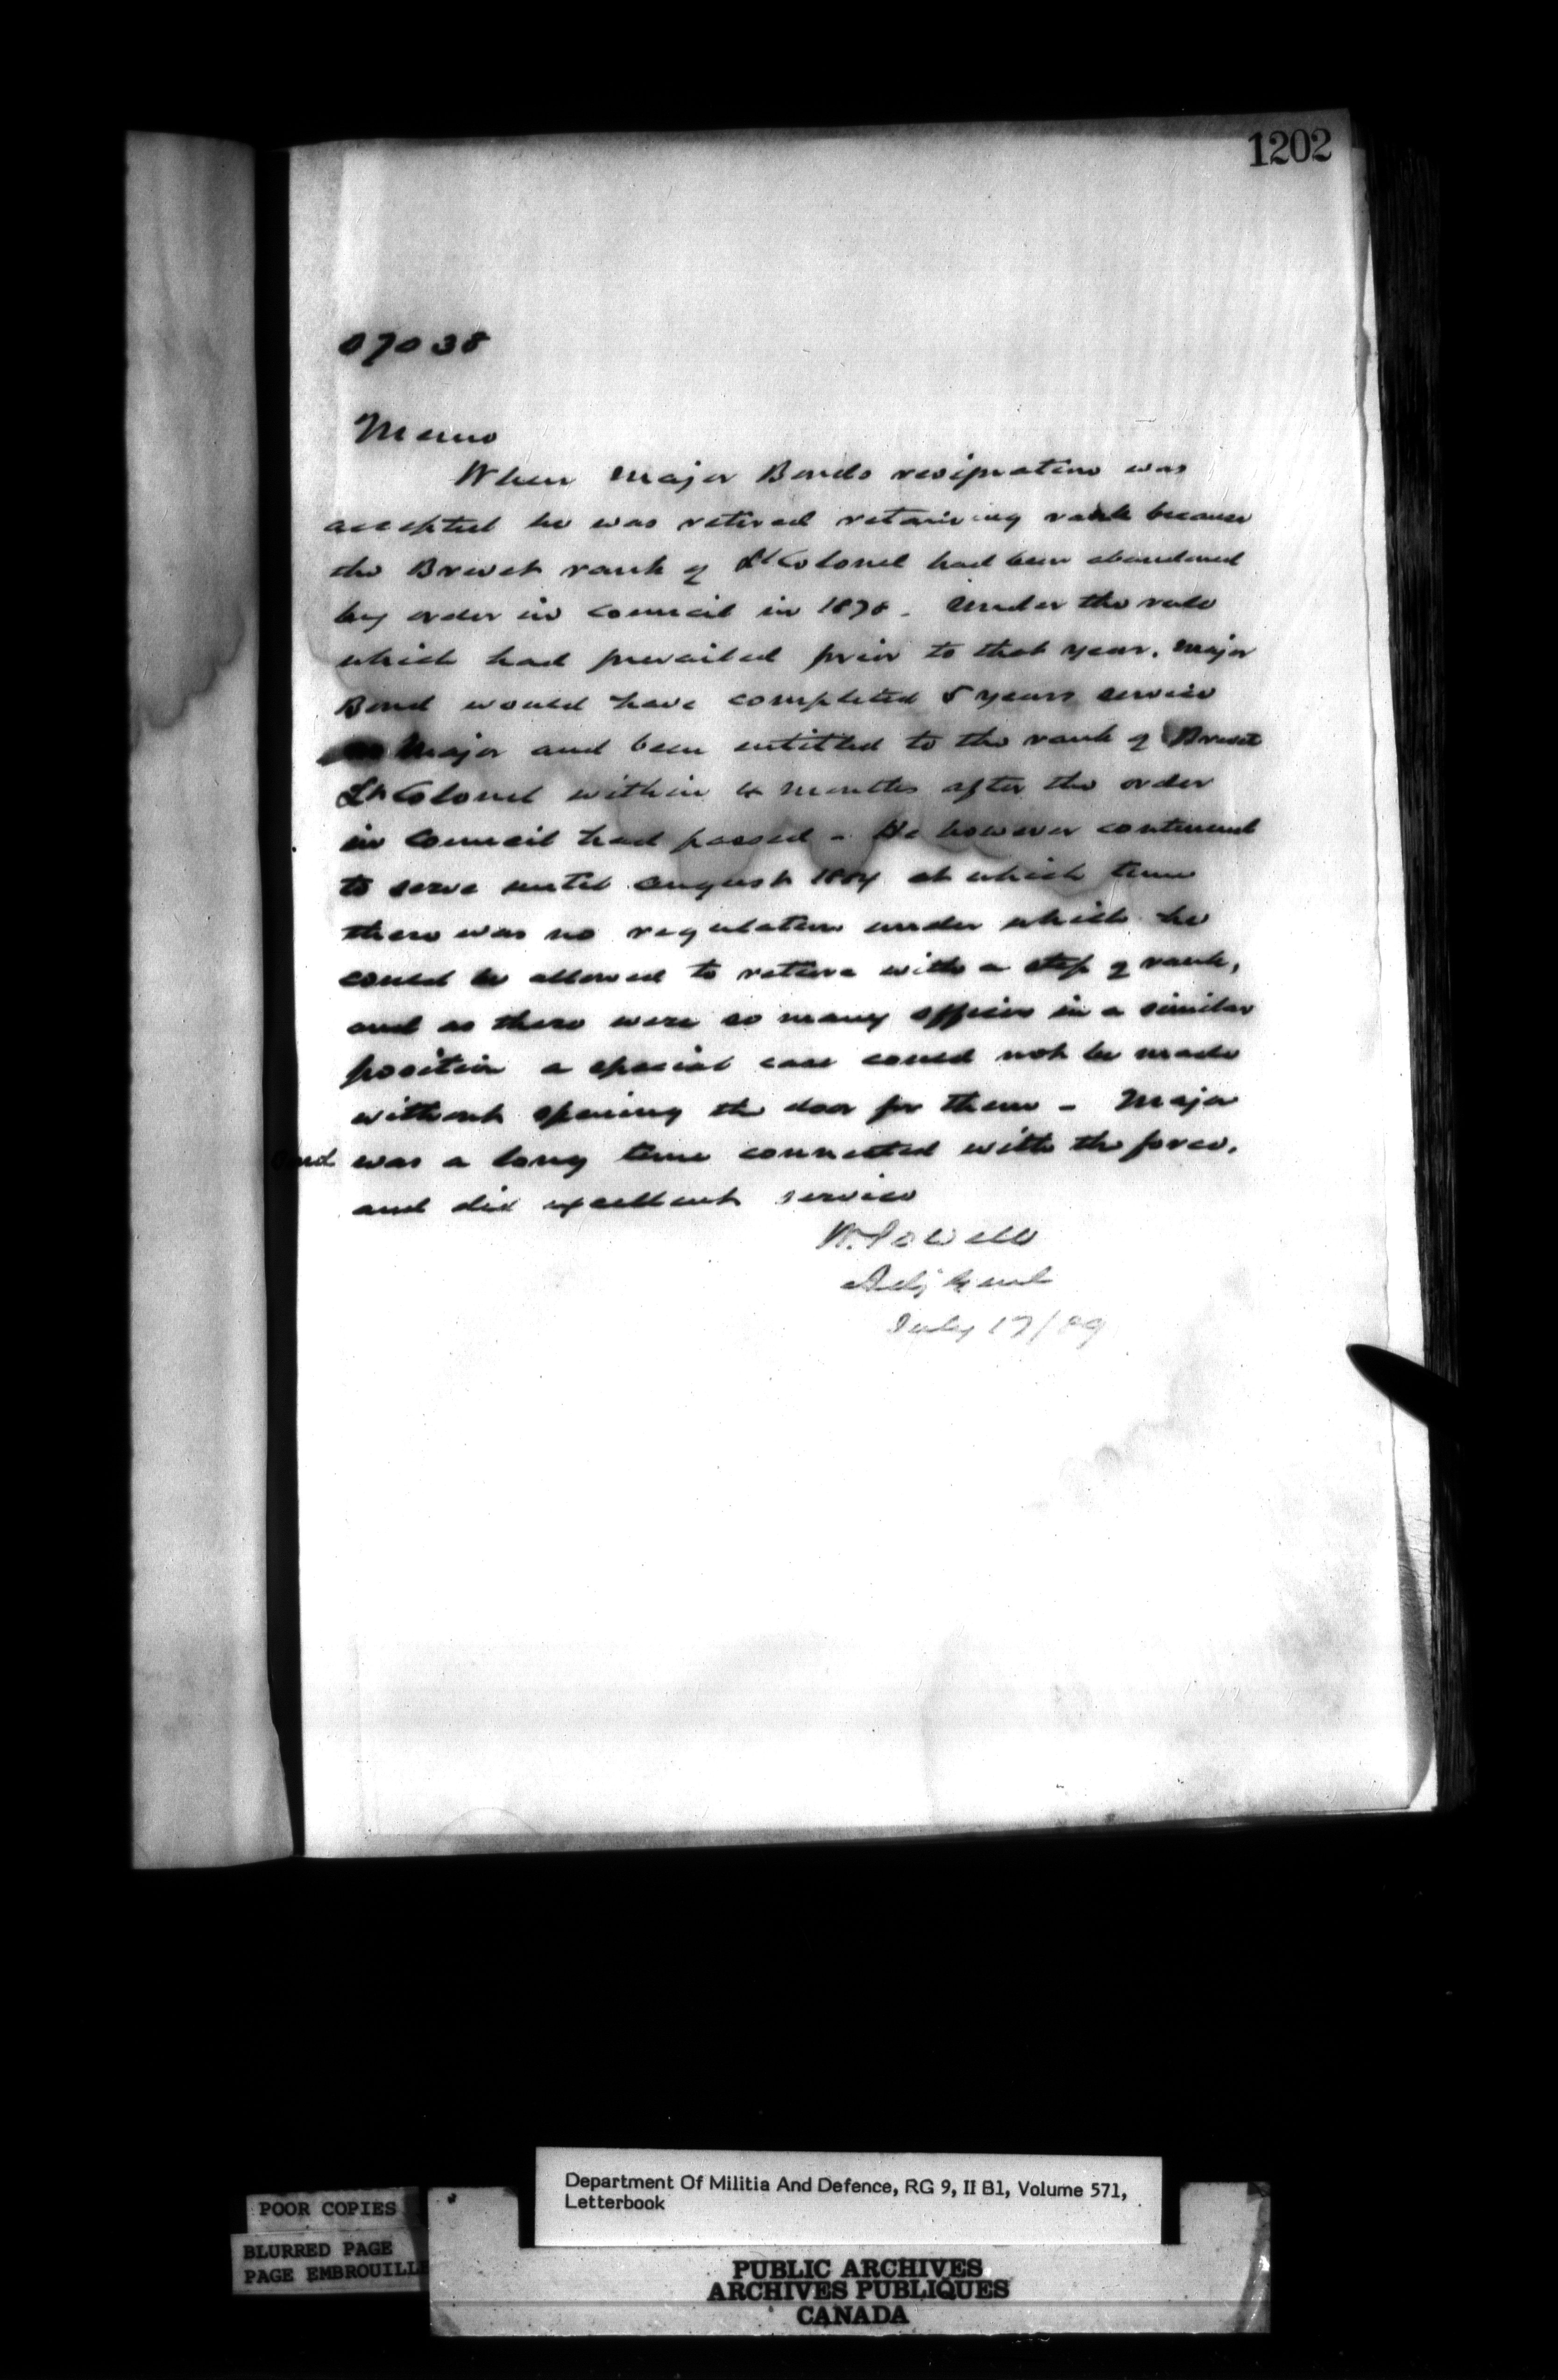 1202
07038
Memo
When Major Bonds resignation was
accepted he was retired retaining rank because
the Brevet rank of Lt Colonel had been abandoned
by order in Council in 1878. Under the rule
which had prevailed prior to that year, Major
Bond would have completed 5 years service
as Major and been entitled to the rank of Brevet
Lt Colonel within 4 months after the order
in Council had passed - He however continued
to serve until August 1884 at which time
there was no regulation under which he
could be allowed to retire with a step of rank,
and as there were so many officers in a similar
position a special case could not be made
without opening the door for them - Major
Bond was a long time connected with the force,
and did excellent service
W. Powell
Adj Genl
July 17/89
Department Of Militia And Defence, RG 9, II B1, Volume 571,
Letterbook
POOR COPIES
BLURRED PAGE
PAGE EMBROUILLE
PUBLIC ARCHIVES
ARCHIVES PUBLIQUES
CANADA